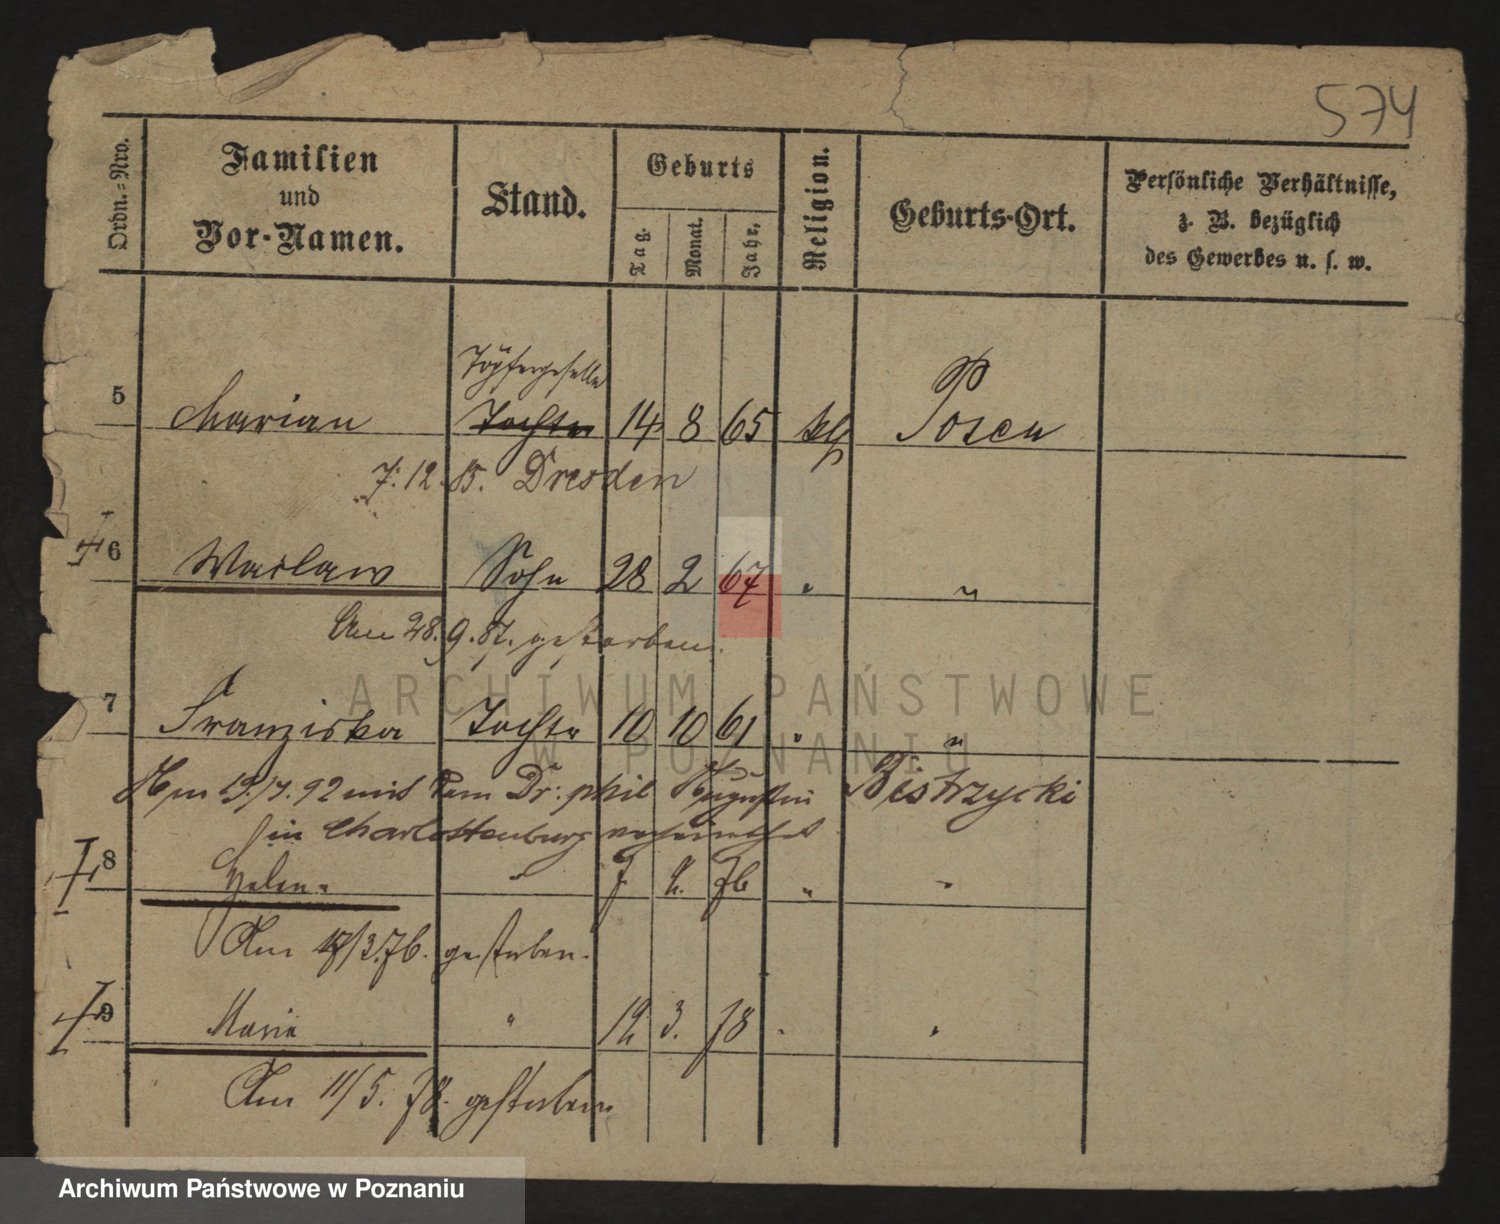 574
Ordn.-Nro.
Familien
und
Vor-Namen.
Stand.
Geburts
Tag.
Monat.
Jahr.
Religion.
Geburts-Ort.
Persönliche Verhältnisse,
z. B. bezüglich
des Gewerbes u. s. w.
Töpfergeselle
5 Marian Tochter 14 8 65 kth Posen
7. 12. 85. Dresden
6 Waclaw Sohn 28 2 67 " "
Am 28. 9. 87. gestorben.
7 Franziska Tochter 10 10 61 " "
Am 19/7. 92 mit dem Dr: phil Augustin Bistrzycki
in Charlottenburg verheirathet
8 Helene " 7 2. 76 " "
Am 17/3. 76. gestorben.
9 Maria " 12 3. 78 " "
Am 11/5. 78. gestorben
ARCHIWUM PAŃSTWOWE
W POZNANIU
Archiwum Państwowe w Poznaniu